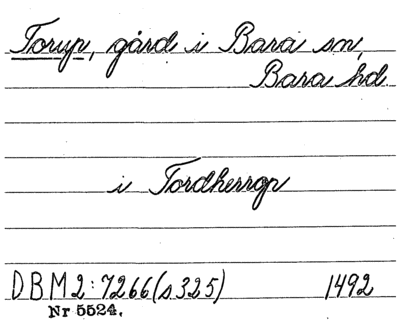 Torup, gård i Bara sn,
Bara hd.
i Tordherrop
DBM2:7266(s325) 1492
Nr 5524.